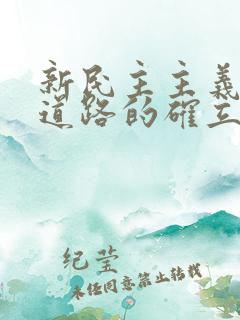 新民主主义
道路的确立
纪莹
未经同意禁止转载